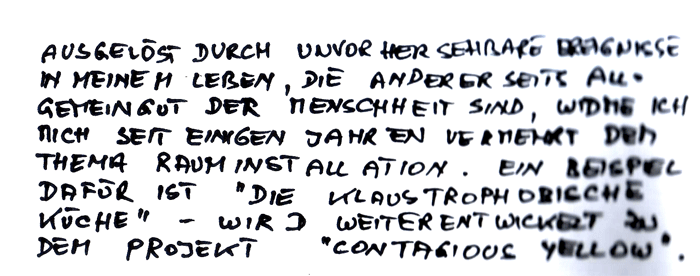 AUSGELÖST DURCH UNVORHERSEHBARE EREIGNISSE
IN MEINEM LEBEN, DIE ANDERERSEITS ALL-
GEMEINGUT DER MENSCHHEIT SIND, WIDME ICH
MICH SEIT EINIGEN JAHREN VERMEHRT DEM
THEMA RAUMINSTALLATION. EIN BEISPIEL
DAFÜR IST "DIE KLAUSTROPHOBISCHE
KÜCHE" - WIRD WEITERENTWICKELT ZU
DEM PROJEKT "CONTAGIOUS YELLOW".